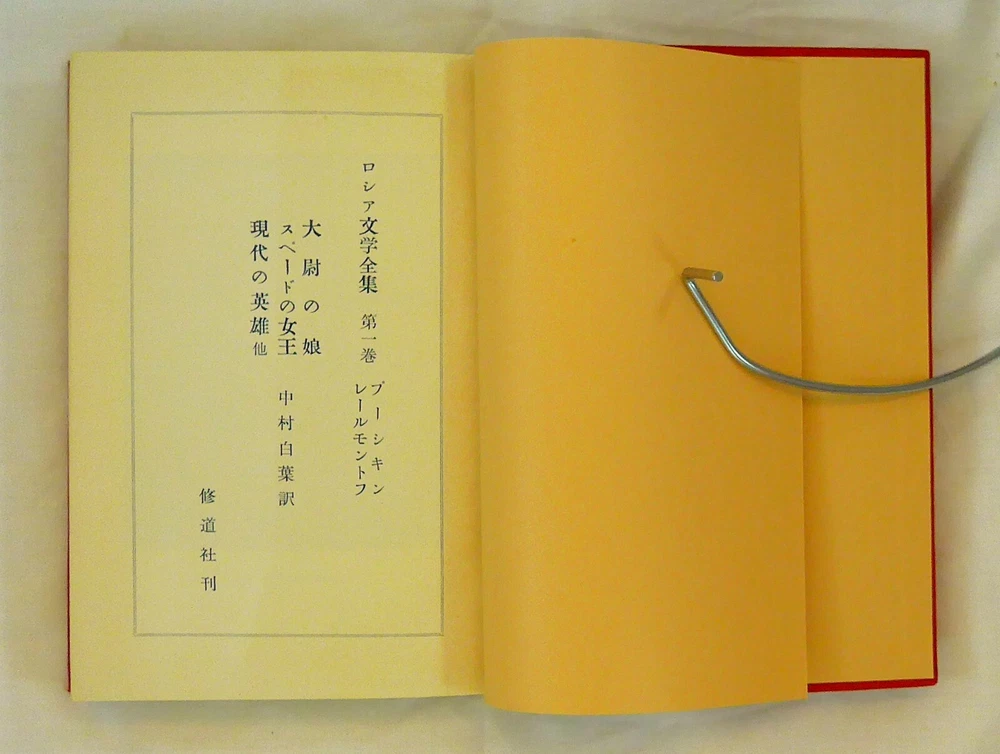 ロシア文学全集 第一巻 プーシキン
レールモントフ
大尉の娘
スペードの女王
現代の英雄 他
中村白葉訳
修道社刊